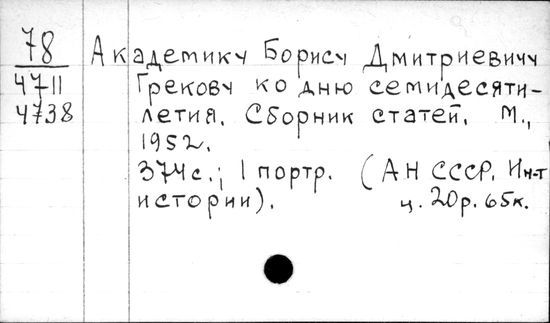 78 Академику Борису Дмитриевичу
4711 Грекову ко дню семидесяти-
4738 летия. Сборник статей. М.,
1952.
374с.; 1 портр. (АН СССР. Ин-т
истории). ц. 20р. 65к.